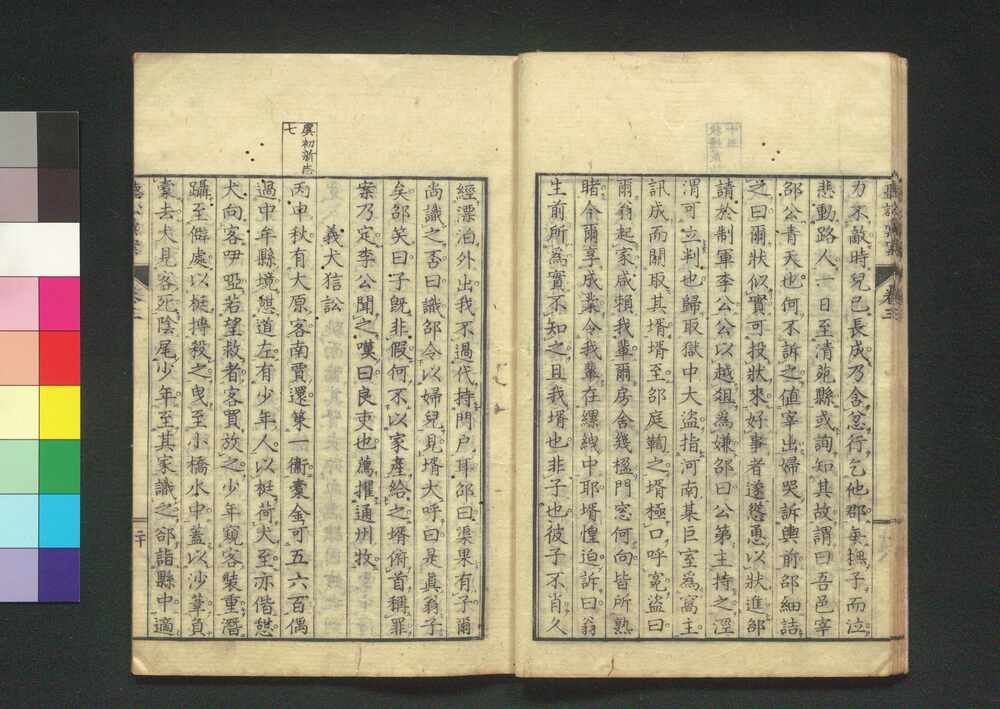 力不敵時兒已長成乃含忿行乞他郡每撫子而泣
悲動路人一日至清苑縣或詢知其故謂曰吾邑宰
邵公青天也何不訴之值宰出婦哭訴輿前邵細詰
之曰爾狀似實可投狀來好事者遂慫恿以狀進邵
請於制軍李公公以越俎為嫌邵曰公第主持之涇
渭可立判也歸取獄中大盜指河南某巨室為窩主
訊成而關取其壻壻至邵庭鞫之壻極口呼冤盜曰
爾翁起家咸賴我輩爾房舍幾楹門窓何向皆所熟
睹今爾享成業令我輩在縲絏中耶壻惶迫訴曰翁
生前所為實不知之且我壻也非子也彼子不肖久
卷三
虞初新志
七
經漂泊外出我不過代持門户耳邵曰渠果有子爾
尚識之否曰識邵令以婦兒見壻大呼曰是真翁子
矣邵笑曰子既非假何不以家產給之壻俯首稱罪
案乃定李公聞之嘆曰良吏也薦擢通州牧
義犬猘訟
丙申秋有大原客南賈還策一衞橐金可五六百偶
過中牟縣境憇道左有少年人以梃荷犬至亦偕憇
犬向客吚啞若望救者客買放之少年窺客裝重潛
躡至僻處以梃摶殺之曳至小橋水中蓋以沙葦負
橐去犬見客死陰尾少年至其家識之郤詣縣中適
二十